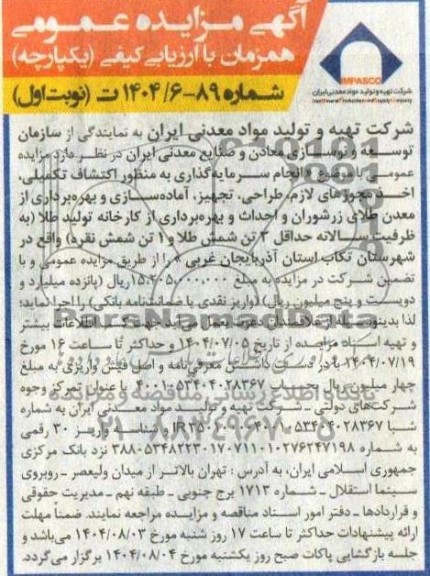 آگهی مزایده عمومی
همزمان با ارزیابی کیفی (یکپارچه)
شماره ۸۹-۱۴۰۴/۶ ت (نوبت اول)
IMPASCO
شرکت تهیه و تولید مواد معدنی ایران
شرکت تهیه و تولید مواد معدنی ایران به نمایندگی از سازمان
توسعه و نوسازی معادن و صنایع معدنی ایران در نظر دارد مزایده
عمومی با موضوع «انجام سرمایه‌گذاری به منظور اکتشاف تکمیلی،
اخذ مجوزهای لازم، طراحی، تجهیز، آماده‌سازی و بهره‌برداری از
معدن طلای زرشوران و احداث و بهره‌برداری از کارخانه تولید طلا (به
ظرفیت سالانه حداقل ۳ تن شمش طلا و ۱ تن شمش نقره) واقع در
شهرستان تکاب استان آذربایجان غربی» را از طریق مزایده عمومی و با
تضمین شرکت در مزایده به مبلغ ۱۵،۲۰۵،۰۰۰،۰۰۰ ریال (پانزده میلیارد و
دویست و پنج میلیون ریال) (واریز نقدی یا ضمانتنامه بانکی) را اجرا نماید؛
لذا بدینوسیله از علاقمندان دعوت بعمل می‌آید جهت کسب اطلاعات بیشتر
و تهیه اسناد مزایده از تاریخ ۱۴۰۴/۰۷/۰۵ و حداکثر تا ساعت ۱۶ مورخ
۱۴۰۴/۰۷/۱۹ با در دست داشتن معرفی‌نامه و اصل فیش واریزی به مبلغ
چهار میلیون ریال بحساب ۴۰۰۱۰۵۳۴۰۴۰۲۸۳۶۷ با عنوان تمرکز وجوه
شرکت‌های دولتی – شرکت تهیه و تولید مواد معدنی ایران به شماره
شبا ۵۳۴۰۴۰۲۸۳۶۷ شناسه واریز ۳۰ رقمی
به شماره ۳۸۸۰۵۳۴۸۲۲۳۰۱۷۰۷۱۱۰۱۰۲۷۶۲۴۷۱۹۸ نزد بانک مرکزی
جمهوری اسلامی ایران، به آدرس : تهران بالاتر از میدان ولیعصر – روبروی
سینما استقلال – شماره ۱۷۱۳ برج جنوبی – طبقه نهم – مدیریت حقوقی
و قراردادها – دفتر امور اسناد مناقصه و مزایده مراجعه نمایند. ضمنا مهلت
ارائه پیشنهادات حداکثر تا ساعت ۱۷ روز شنبه مورخ ۱۴۰۴/۰۸/۰۳ می‌باشد و
جلسه بازگشایی پاکات صبح روز یکشنبه مورخ ۱۴۰۴/۰۸/۰۴ برگزار می‌گردد.
ParsNamadData
پایگاه اطلاع رسانی مناقصه و مزایده
۰۲۱-۸۸۳۴۹۶۷۰-۵